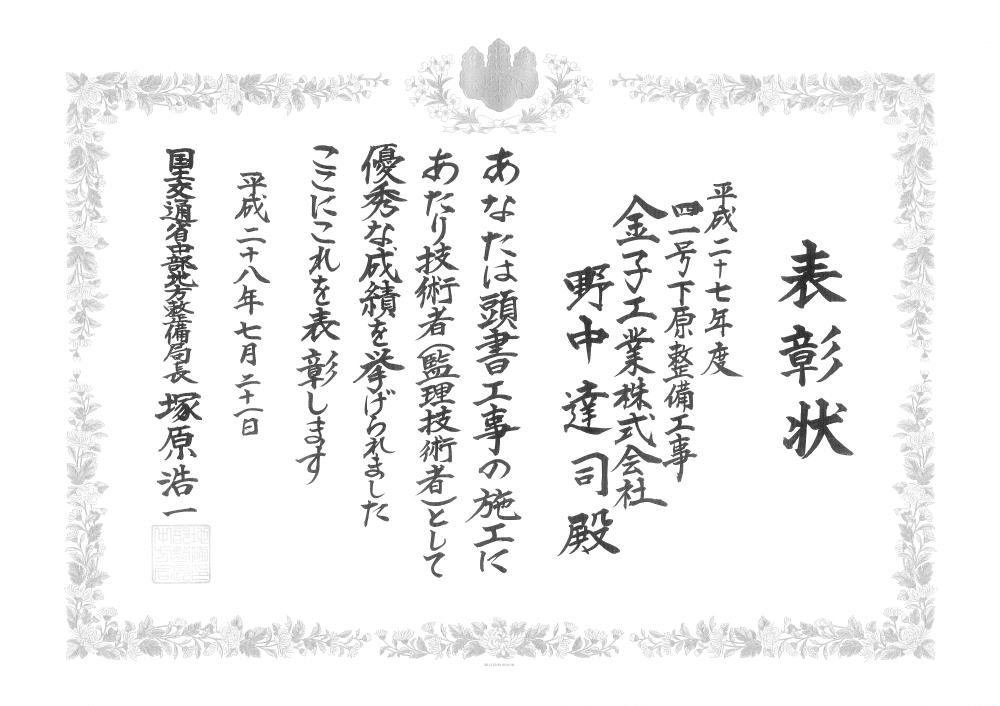 表彰状
平成二十七年度
四一号下原整備工事
金子工業株式会社
野中達司殿
あなたは頭書工事の施工に
あたり技術者(監理技術者)として
優秀な成績を挙げられました
ここにこれを表彰します
平成二十八年七月二十一日
国土交通省中部地方整備局長 塚原浩一